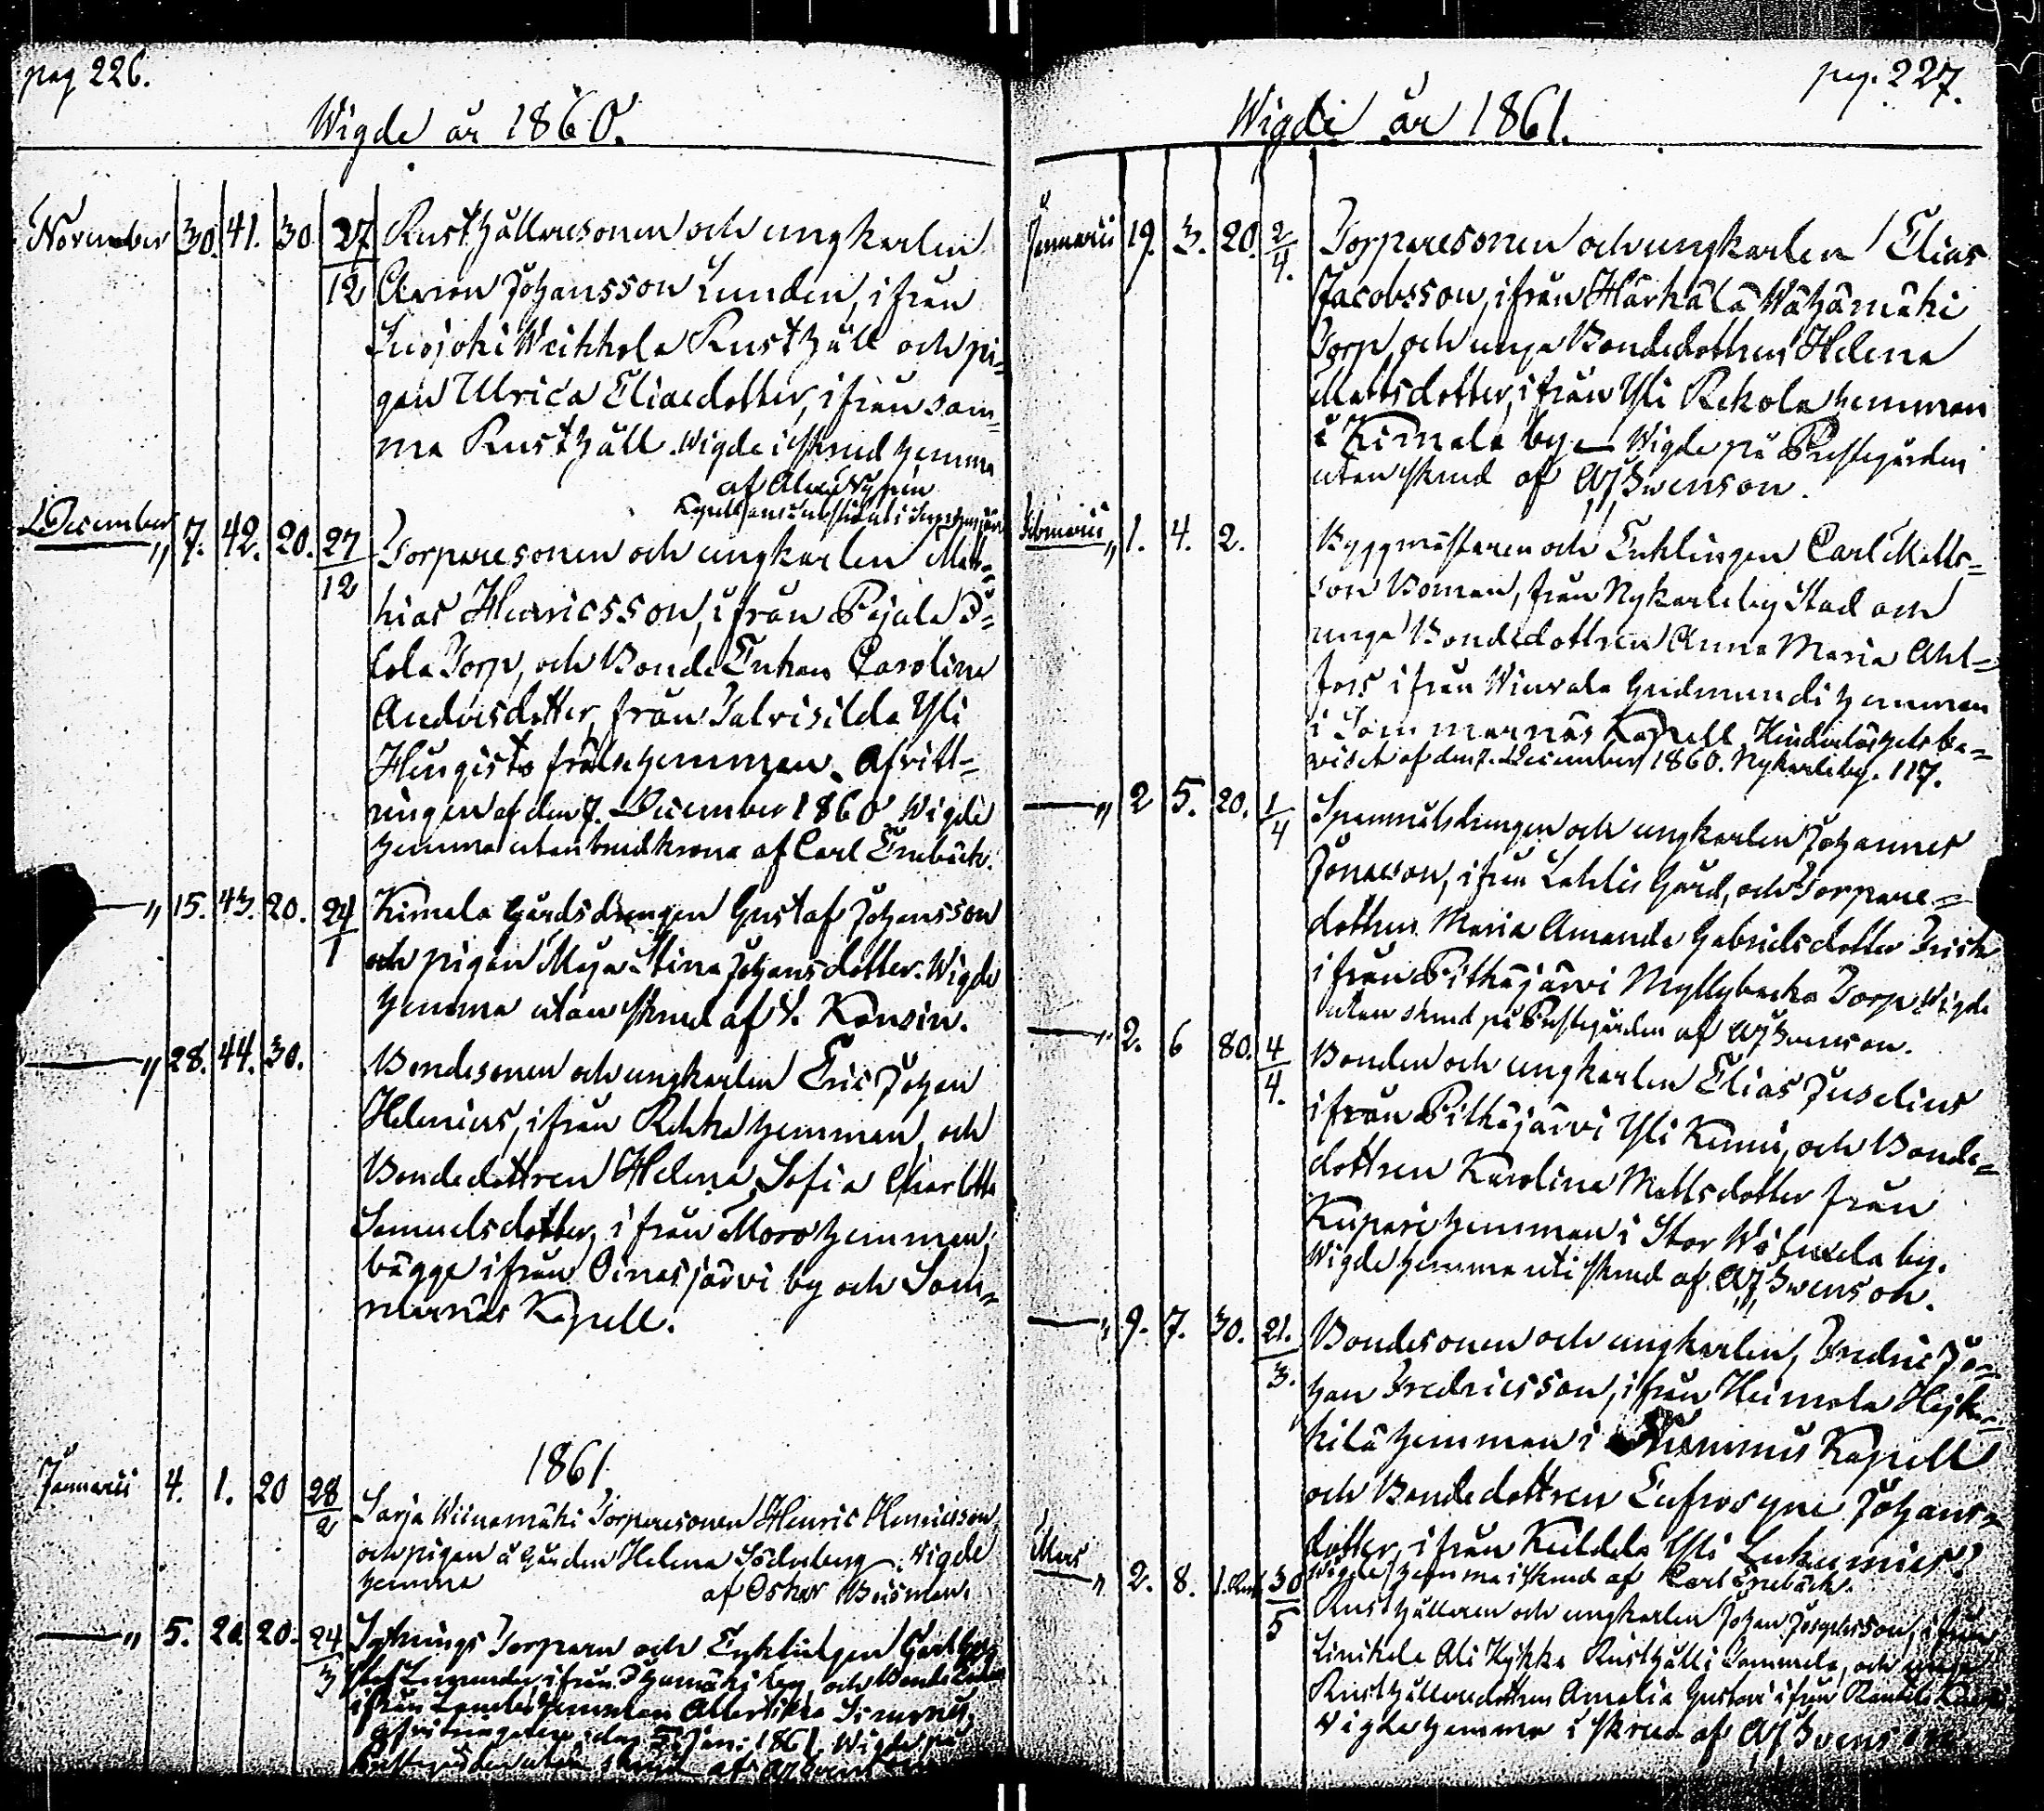 pag 226.
Wigde år 1860.
November 30. 41. 30. 27/12 Rusthållaresonen och ungkarlen
Johansson Lunden, ifrån
Suojoki Weikkola Rusthåll och pi=
gan Ulrica Eliaedotter, ifrån sam=
ma Rusthåll. Wigde i skrud hemma
af
December " 7. 42. 20. 27/12 Torparesonen och ungkarlen Matt=
hias Henricsson, ifrån
Torp, och Bonde Enkan Carolina
Andersdotter, från Talvisilda Yli
Hengisto frälsehemman. Afvitt=
ringen af den 7. December 1860. Wigde
hemma utan brudkrona af Carl Enebäck.
— " 15. 43. 20. 24/1 Kimala Gårdsdrengen Gustaf Johansson
och pigan Maja Stina Johansdotter. Wigde
hemma utan skrud af
— " 28. 44. 30. Bondesonen och ungkarlen Eric Johan
Helenius, ifrån Rekka hemman, och
Bondedottren Helena Sofia Charlotta
Samuelsdotter, ifrån Moro hemman,
bägge ifrån Oinasjärvi by och Som=
marnäs Kapell.
1861
Januarii 4. 1. 20 28/2 Sarja Torparesonen Henric Henricsson
och pigan å Gården Helena Söderberg. Wigde
hemma af Oskar
— " 5. 2. 20. 24/3 Torparen och Enklingen
ifrån by, och Bonde
ifrån hemman
den 5 Jan: 1861. Wigde på
utan skrud af
pag. 227.
Wigde år 1861.
Januarii 19. 3. 20. 2/4. Torparesonen och ungkarlen Elias
Jacobsson, ifrån Härkälä Wähämäki
Torp, och unga Bondedottren Helena
Mattsdotter, ifrån Yli Rekola hemman
i Kimala by — Wigde på Prestgården
utan skrud af AJ Swenson.
Februarii " 1. 4. 2. Byggmästaren och Enklingen Carl Matts=
son Boman, från Nykarleby Stad och
unga Bondedottren Anna Maria Ahl=
fors ifrån Gudmundi hemman
i Sommarnäs Kapell. Hinderlöshetsbe=
viset af den 7. December 1860. Nykarleby. 117.
— " 2 5. 20. 1/4 Spannmålsdrengen och ungkarlen Johannes
Jonasson, ifrån Lahtis Gård, och Torpare=
dottren Maria Amanda Gabrielsdotter Frisk
ifrån Pitkäjärvi Myllybacka Torp. Wigde
utan skrud på Prestgården af AJ Swenson.
— " 2. 6 80. 4/4. Bonden och ungkarlen Elias Juselius
ifrån Pitkäjärvi Yli Knuu, och Bonde=
dottren Karolina Mattsdotter från
Kupari hemman i Stor by.
Wigde hemma uti skrud af AJ Swenson.
— " 9. 7. 30. 21./3. Bondesonen och ungkarlen, Fredric Jo=
han Fredricsson, ifrån Heimola Hejk=
kilä hemman i Nummis Kapell
och Bondedottren Eufrosyne Johans=
dotter, ifrån Yli
Wigde hemma i skrud af Carl Enebäck.
Mars " 2. 8. 30/5 Rusthållaren och ungkarlen Johan Josephsson, ifrån
Linikala Ali Kykka Rusthåll i Tammela, och unga
Rusthållaredottren Amalia ifrån
Wigde hemma i skrud af AJ Swenson.